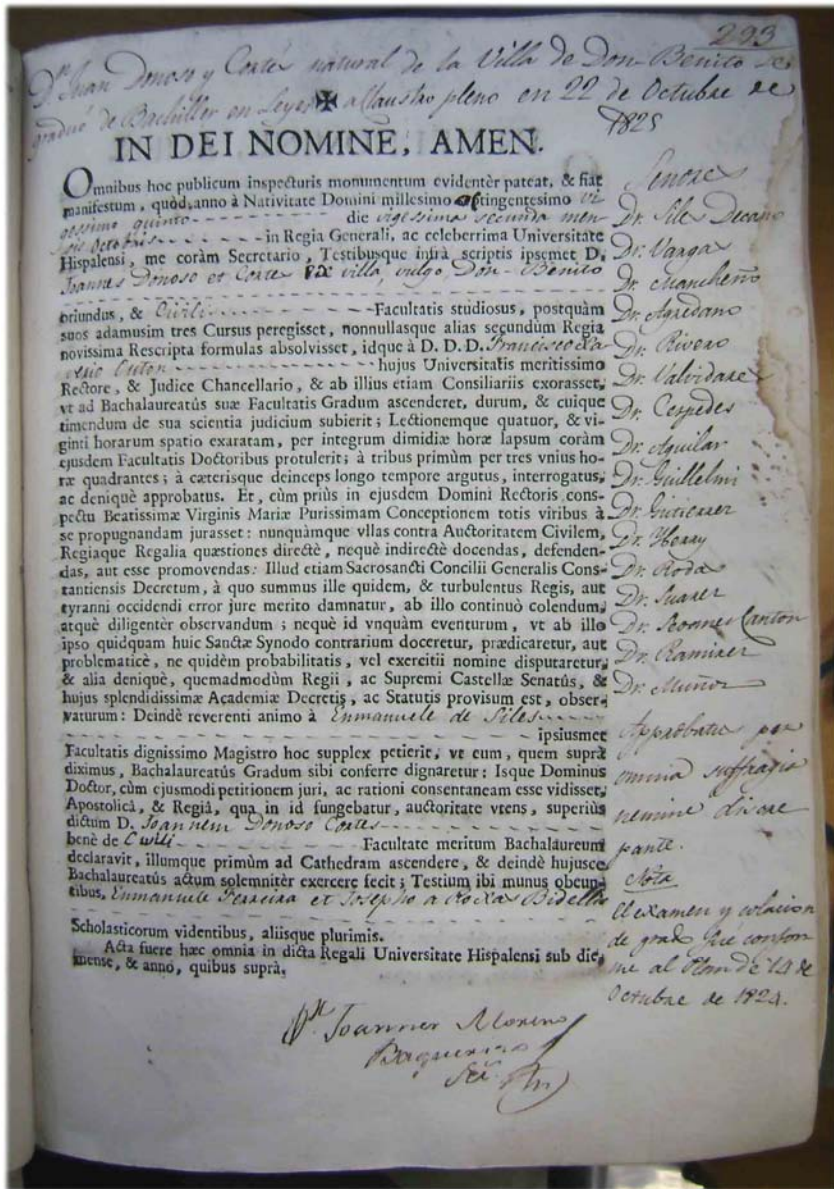 293
Dn. Juan Donoso y Cortés natural de la Villa de Don-Benito se
graduó de Bachiller en Leyes a Claustro pleno en 22 de Octubre de
1825
IN DEI NOMINE, AMEN.
Omnibus hoc publicum inspecturis monumentum evidentèr pateat, & fiat
manifestum, quòd anno à Nativitate Domini millesimo octingentesimo vi
gessimo quinto die vigessima secunda men-
sis Octobris in Regia Generali, ac celeberrima Universitate
Hispalensi, me coràm Secretario, Testibusque infrà scriptis ipsemet D.
Joannes Donoso et Cortes ex villa, vulgo Don-Benito
oriundus, & Civilis Facultatis studiosus, postquàm
suos adamusim tres Cursus peregisset, nonnullasque alias secundùm Regia
novissima Rescripta formulas absolvisset, idque à D. D. D. Francisco Xa-
verio hujus Universitatis meritissimo
Rectore, & Judice Chancellario, & ab illius etiam Consiliariis exorasset,
vt ad Bachalaureatûs suæ Facultatis Gradum ascenderet, durum, & cuique
timendum de sua scientia judicium subierit; Lectionemque quatuor, & vi-
ginti horarum spatio exaratam, per integrum dimidiæ horæ lapsum coràm
ejusdem Facultatis Doctoribus protulerit; à tribus primùm per tres vnius ho-
ræ quadrantes; à cæterisque deinceps longo tempore argutus, interrogatus,
ac deniquè approbatus. Et, cùm priùs in ejusdem Domini Rectoris cons-
pectu Beatissimæ Virginis Mariæ Purissimam Conceptionem totis viribus à
se propugnandam jurasset: nunquàmque vllas contra Auctoritatem Civilem,
Regiaque Regalia quæstiones directè, nequè indirectè docendas, defenden-
das, aut esse promovendas: Illud etiam Sacrosancti Concilii Generalis Cons-
tantiensis Decretum, à quo summus ille quidem, & turbulentus Regis, aut
tyranni occidendi error jure merito damnatur, ab illo continuò colendum,
atquè diligentèr observandum; nequè id vnquàm eventurum, vt ab illo
ipso quidquam huic Sanctæ Synodo contrarium doceretur, prædicaretur, aut
problematicè, ne quidèm probabilitatis, vel exercitii nomine disputaretur,
& alia deniquè, quemadmodùm Regii, ac Supremi Castellæ Senatûs, &
hujus splendidissimæ Academiæ Decretis, ac Statutis provisum est, obser-
vaturum: Deindè reverenti animo à Enmanuele de Siles
ipsiusmet
Facultatis dignissimo Magistro hoc supplex petierit, vt eum, quem suprà
diximus, Bachalaureatûs Gradum sibi conferre dignaretur: Isque Dominus
Doctor, cùm ejusmodi petitionem juri, ac rationi consentaneam esse vidisset,
Apostolicâ, & Regiâ, qua in id fungebatur, auctoritate vtens, superiùs
dictum D. Joannem Donoso Cortes
benè de Civili Facultate meritum Bachalaureum
declaravit, illumque primùm ad Cathedram ascendere, & deindè hujusce
Bachalaureatûs actum solemnitèr exercere fecit; Testium ibi munus obeun-
tibus, Enmanuele Ferreira et Josepho a Roxas Bidellis
Scholasticorum videntibus, aliisque plurimis.
Acta fuere hæc omnia in dicta Regali Universitate Hispalensi sub die,
mense, & anno, quibus suprà.
Joannes Moreno
Baquerizo
Señores
Dr. Siles Decano
Dr. Vargas
Dr. Mancheño
Dr. Agredano
Dr. Rivero
Dr. Valvidares
Dr. Cespedes
Dr. Aguilar
Dr. Guillelmi
Dr. Gutierrez
Dr. Henry
Dr. Rodas
Dr. Suarez
Dr. Canton
Dr. Ramirez
Dr. Muñoz
Approbatus per
omnia suffragia
nemine discre
pante.
Nota
El examen y colacion
de grado fué confor
me al Plan de 14 de
Octubre de 1824.